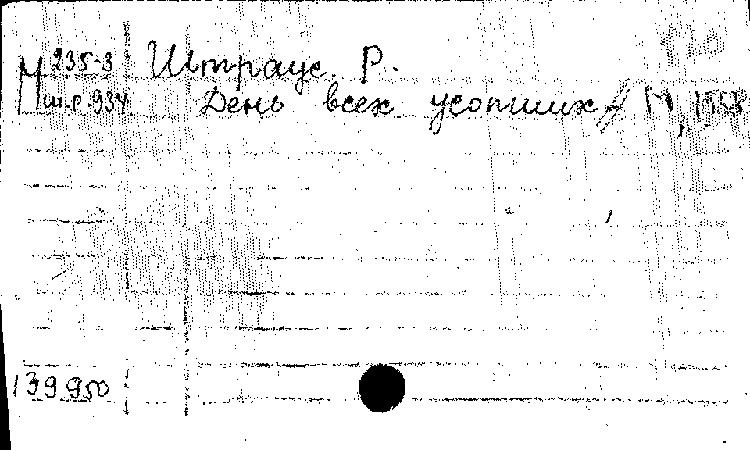 235-3 Штраус. Р.
ш.р.934 День всех усопших М, 1958
139950